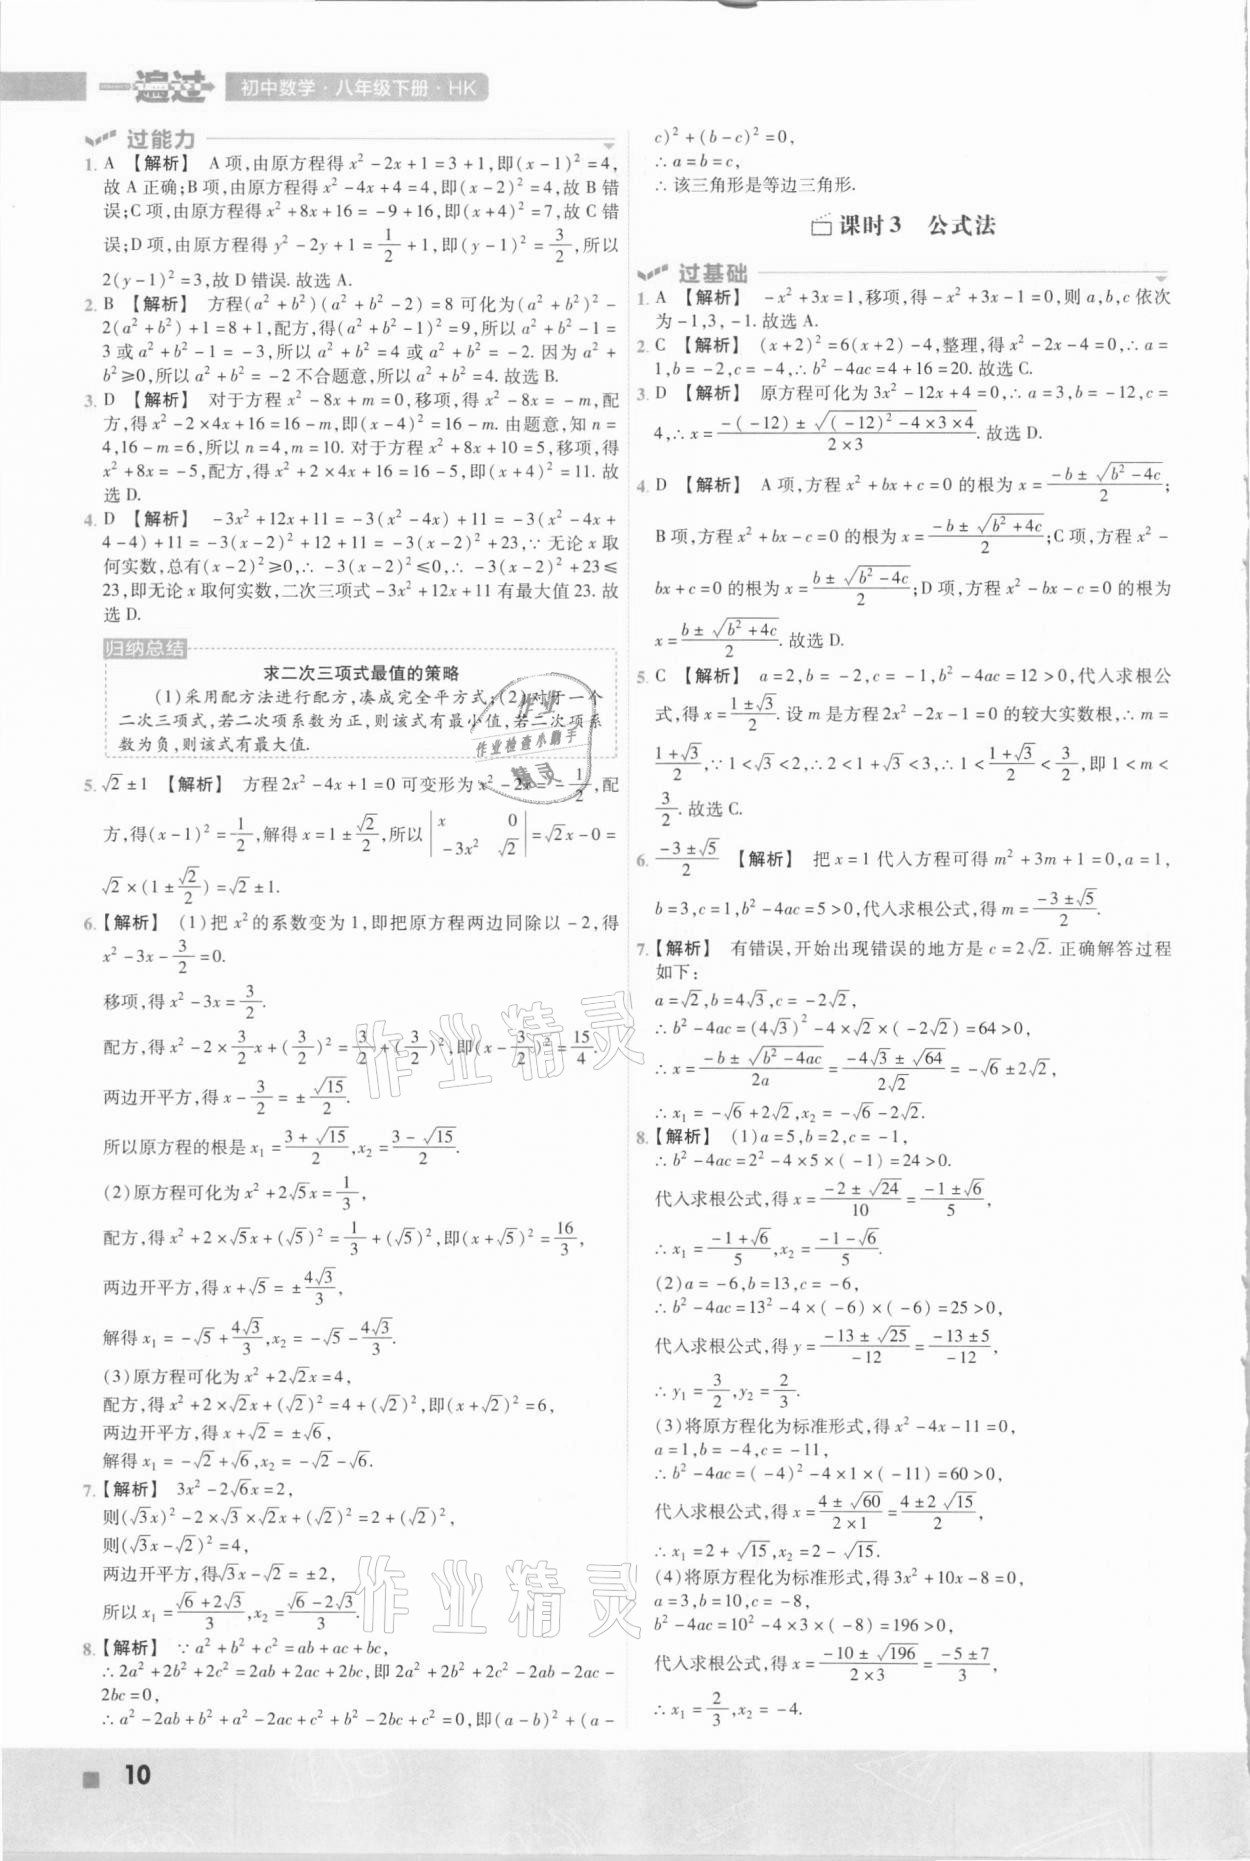 一遍过 初中数学·八年级下册·HK
过能力
1. A 【解析】 A 项,由原方程得 x²-2x+1=3+1,即(x-1)²=4,
故 A 正确;B 项,由原方程得 x²-4x+4=4,即(x-2)²=4,故 B 错
误;C 项,由原方程得 x²+8x+16=-9+16,即(x+4)²=7,故 C 错
误;D 项,由原方程得 y²-2y+1=1/2+1,即(y-1)²=3/2,所以
2(y-1)²=3,故 D 错误. 故选 A.
2. B 【解析】 方程(a²+b²)(a²+b²-2)=8 可化为(a²+b²)²-
2(a²+b²)+1=8+1,配方,得(a²+b²-1)²=9,所以 a²+b²-1=
3 或 a²+b²-1=-3,所以 a²+b²=4 或 a²+b²=-2. 因为 a²+
b²≥0,所以 a²+b²=-2 不合题意,所以 a²+b²=4. 故选 B.
3. D 【解析】 对于方程 x²-8x+m=0,移项,得 x²-8x=-m,配
方,得 x²-2×4x+16=16-m,即(x-4)²=16-m. 由题意,知 n=
4,16-m=6,所以 n=4,m=10. 对于方程 x²+8x+10=5,移项,得
x²+8x=-5,配方,得 x²+2×4x+16=16-5,即(x+4)²=11. 故
选 D.
4. D 【解析】 -3x²+12x+11=-3(x²-4x)+11=-3(x²-4x+
4-4)+11=-3(x-2)²+12+11=-3(x-2)²+23,∵无论 x 取
何实数,总有(x-2)²≥0,∴-3(x-2)²≤0,∴-3(x-2)²+23≤
23,即无论 x 取何实数,二次三项式-3x²+12x+11 有最大值 23. 故
选 D.
归纳总结
求二次三项式最值的策略
(1)采用配方法进行配方,凑成完全平方式;(2)对于一个
二次三项式,若二次项系数为正,则该式有最小值,若二次项系
数为负,则该式有最大值.
5. √2±1 【解析】 方程 2x²-4x+1=0 可变形为 x²-2x=-1/2,配
方,得(x-1)²=1/2,解得 x=1±√2/2,所以|x 0; -3x² √2|=√2x-0=
√2×(1±√2/2)=√2±1.
6. 【解析】 (1)把 x²的系数变为 1,即把原方程两边同除以-2,得
x²-3x-3/2=0.
移项,得 x²-3x=3/2.
配方,得 x²-2×3/2x+(3/2)²=3/2+(3/2)²,即(x-3/2)²=15/4.
两边开平方,得 x-3/2=±√15/2.
所以原方程的根是 x₁=(3+√15)/2,x₂=(3-√15)/2.
(2)原方程可化为 x²+2√5x=1/3,
配方,得 x²+2×√5x+(√5)²=1/3+(√5)²,即(x+√5)²=16/3,
两边开平方,得 x+√5=±4√3/3,
解得 x₁=-√5+4√3/3,x₂=-√5-4√3/3.
(3)原方程可化为 x²+2√2x=4,
配方,得 x²+2×√2x+(√2)²=4+(√2)²,即(x+√2)²=6,
两边开平方,得 x+√2=±√6,
解得 x₁=-√2+√6,x₂=-√2-√6.
7. 【解析】 3x²-2√6x=2,
则(√3x)²-2×√3×√2x+(√2)²=2+(√2)²,
则(√3x-√2)²=4,
两边开平方,得√3x-√2=±2,
所以 x₁=(√6+2√3)/3,x₂=(√6-2√3)/3.
8. 【解析】 ∵a²+b²+c²=ab+ac+bc,
∴2a²+2b²+2c²=2ab+2ac+2bc,即 2a²+2b²+2c²-2ab-2ac-
2bc=0,
∴a²-2ab+b²+a²-2ac+c²+b²-2bc+c²=0,即(a-b)²+(a-
c)²+(b-c)²=0,
∴a=b=c,
∴该三角形是等边三角形.
课时 3 公式法
过基础
1. A 【解析】 -x²+3x=1,移项,得-x²+3x-1=0,则 a,b,c 依次
为-1,3,-1. 故选 A.
2. C 【解析】 (x+2)²=6(x+2)-4,整理,得 x²-2x-4=0,∴a=
1,b=-2,c=-4,∴b²-4ac=4+16=20. 故选 C.
3. D 【解析】 原方程可化为 3x²-12x+4=0,∴a=3,b=-12,c=
4,∴x=(-(-12)±√((-12)²-4×3×4))/(2×3). 故选 D.
4. D 【解析】 A 项,方程 x²+bx+c=0 的根为 x=(-b±√(b²-4c))/2;
B 项,方程 x²+bx-c=0 的根为 x=(-b±√(b²+4c))/2;C 项,方程 x²-
bx+c=0 的根为 x=(b±√(b²-4c))/2;D 项,方程 x²-bx-c=0 的根为
x=(b±√(b²+4c))/2. 故选 D.
5. C 【解析】 a=2,b=-2,c=-1,b²-4ac=12>0,代入求根公
式,得 x=(1±√3)/2. 设 m 是方程 2x²-2x-1=0 的较大实数根,∴m=
(1+√3)/2,∵1<√3<2,∴2<1+√3<3,∴1<(1+√3)/2<3/2,即 1<m<
3/2. 故选 C.
6. (-3±√5)/2 【解析】 把 x=1 代入方程可得 m²+3m+1=0,a=1,
b=3,c=1,b²-4ac=5>0,代入求根公式,得 m=(-3±√5)/2.
7. 【解析】 有错误,开始出现错误的地方是 c=2√2. 正确解答过程
如下:
a=√2,b=4√3,c=-2√2,
∴b²-4ac=(4√3)²-4×√2×(-2√2)=64>0,
∴x=(-b±√(b²-4ac))/2a=(-4√3±√64)/2√2=-√6±2√2,
∴x₁=-√6+2√2,x₂=-√6-2√2.
8. 【解析】 (1)a=5,b=2,c=-1,
∴b²-4ac=2²-4×5×(-1)=24>0.
代入求根公式,得 x=(-2±√24)/10=(-1±√6)/5,
∴x₁=(-1+√6)/5,x₂=(-1-√6)/5.
(2)a=-6,b=13,c=-6,
∴b²-4ac=13²-4×(-6)×(-6)=25>0,
代入求根公式,得 y=(-13±√25)/-12=(-13±5)/-12,
∴y₁=3/2,y₂=2/3.
(3)将原方程化为标准形式,得 x²-4x-11=0,
a=1,b=-4,c=-11,
∴b²-4ac=(-4)²-4×1×(-11)=60>0,
代入求根公式,得 x=(4±√60)/(2×1)=(4±2√15)/2,
∴x₁=2+√15,x₂=2-√15.
(4)将原方程化为标准形式,得 3x²+10x-8=0,
a=3,b=10,c=-8,
b²-4ac=10²-4×3×(-8)=196>0,
代入求根公式,得 x=(-10±√196)/(2×3)=(-5±7)/3,
∴x₁=2/3,x₂=-4.
作业
作业检查小助手
精灵
作业精灵
作业精灵
10